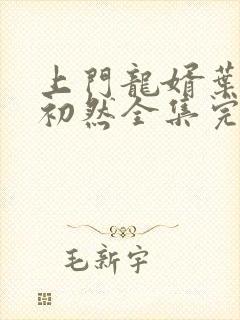 上門龍婿葉
初然全集完
毛新宇